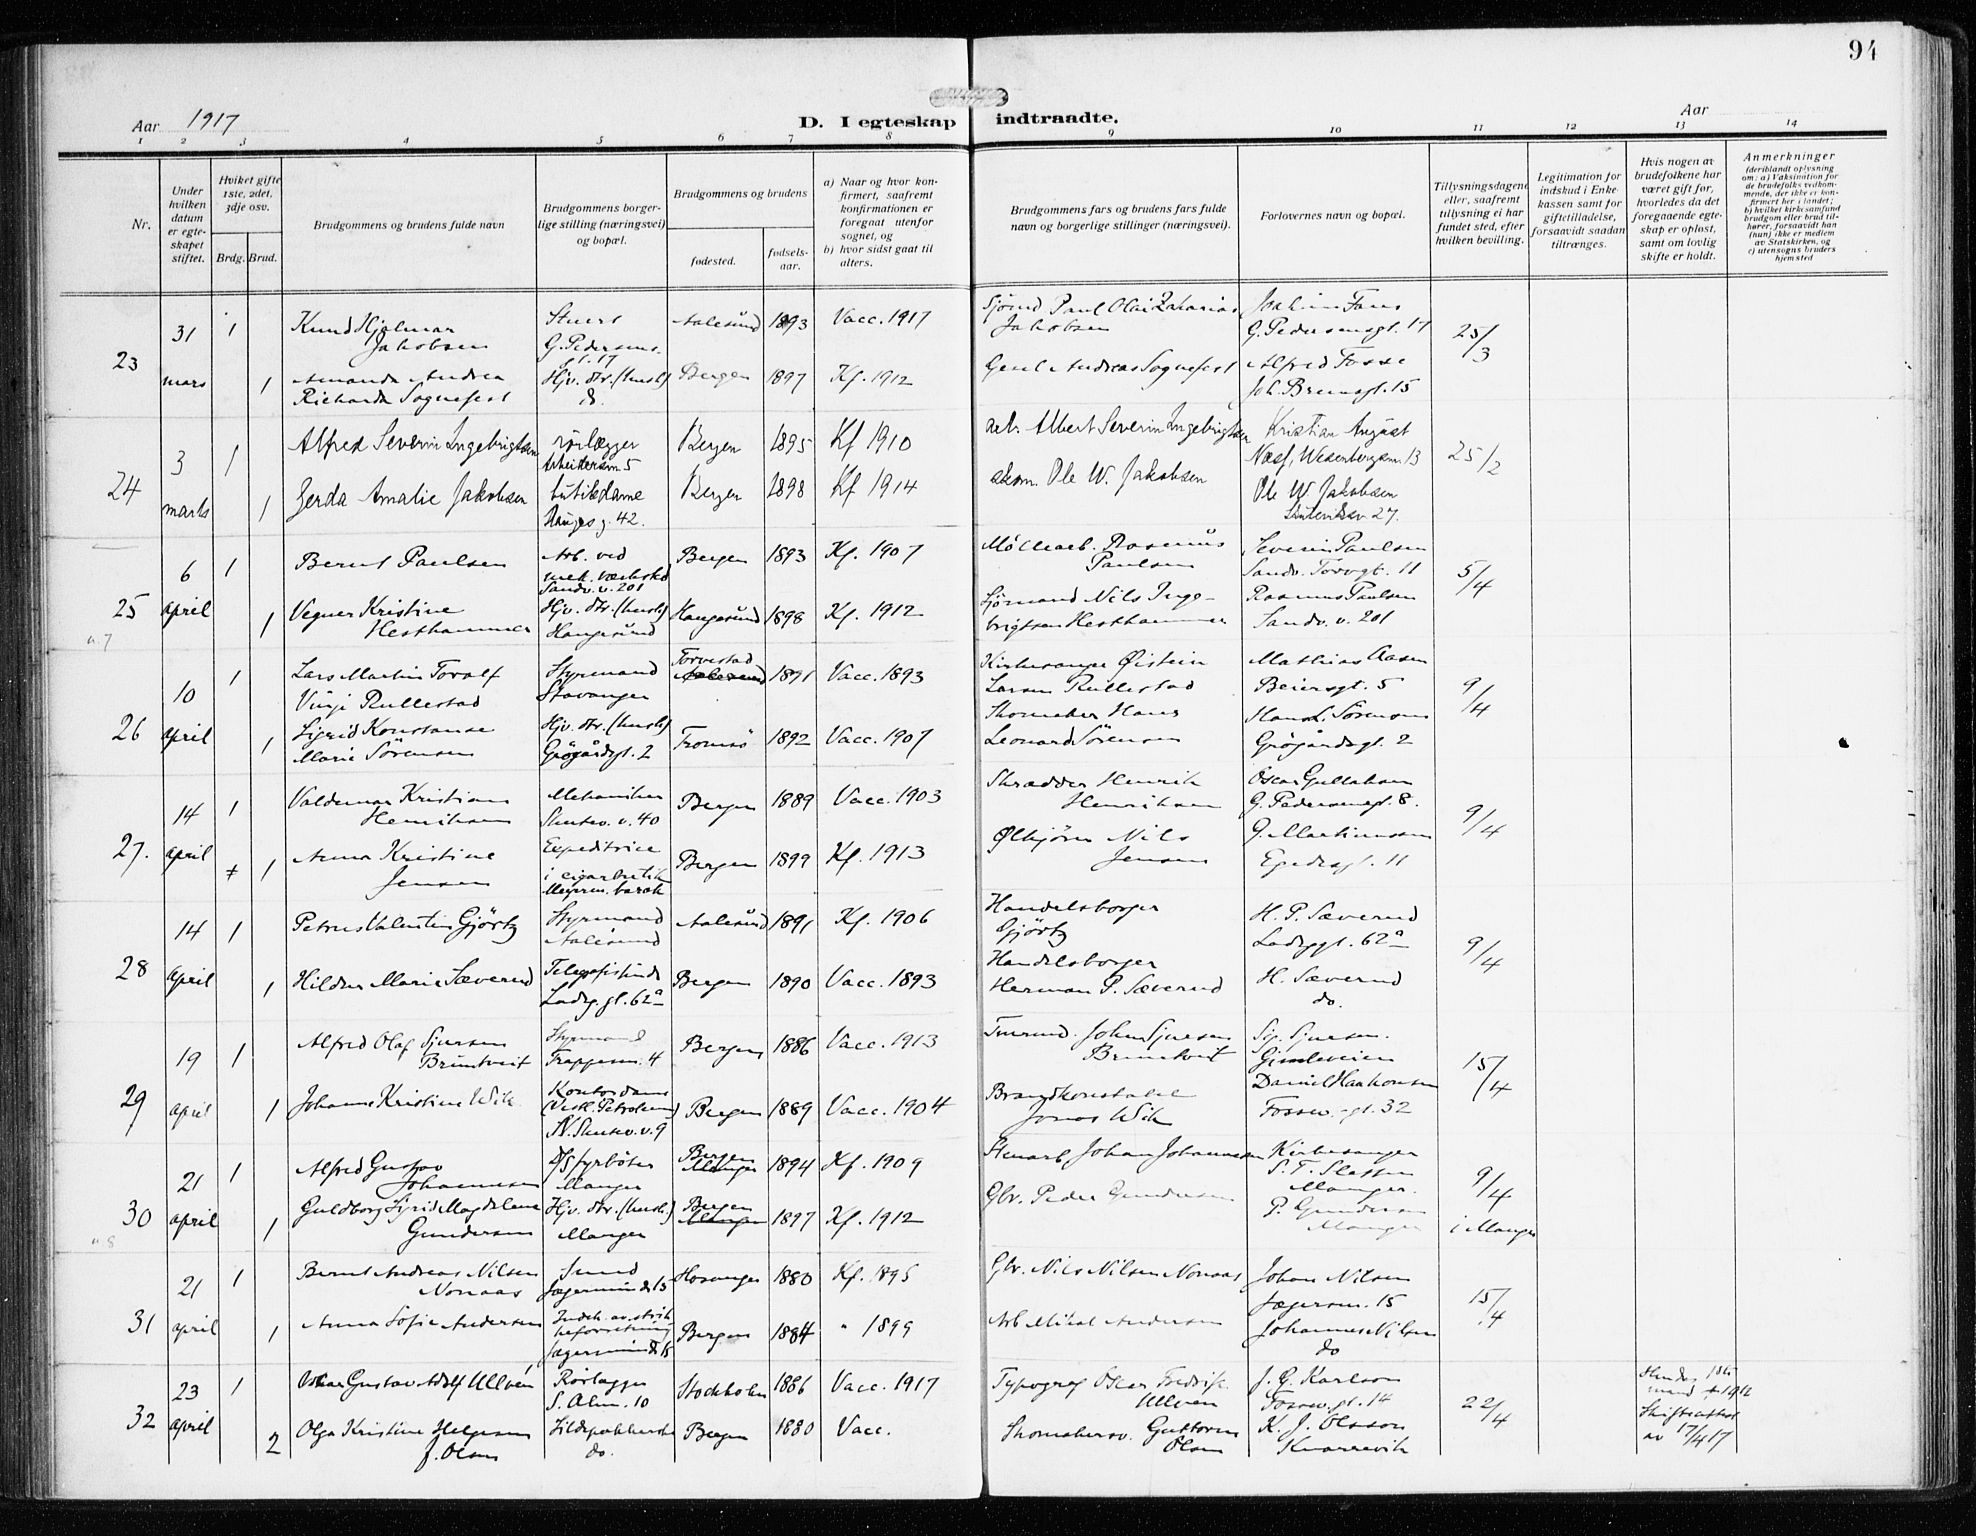 94
Aar 1917
D. I egteskap indtraadte.
Aar
1 2 3 4 5 6 7 8 9 10 11 12 13 14
Nr.
Under hvilken datum er egteskapet stiftet.
Hviket gifte 1ste, 2det, 3dje osv.
Brdg. Brud.
Brudgommens og brudens fulde navn
Brudgommens borgerlige stilling (næringsvei) og bopæl.
Brudgommens og brudens
fødested.
fødselsaar.
a) Naar og hvor konfirmert, saafremt konfirmationen er foregaat utenfor sognet, og
b) hvor sidst gaat til alters.
Brudgommens fars og brudens fars fulde navn og borgerlige stillinger (næringsvei).
Forlovernes navn og bopæl.
Tillysningsdagene eller, saafremt tillysning ei har fundet sted, efter hvilken bevilling.
Legitimation for indskud i Enkekassen samt for giftetilladelse, forsaavidt saadan tiltrænges.
Hvis nogen av brudefolkene har været gift før, hvorledes da det foregaaende egteskap er opløst, samt om lovlig skifte er holdt.
Anmerkninger
(deriblandt oplysning om: a) Vaksination for de brudefolks vedkommende, der ikke er konfirmert her i landet; b) hvilket kirkesamfund brudgom eller brud tilhører, forsaavidt han (hun) ikke er medlem av Statskirken, og c) utensogns bruders hjemsted
23
31 mars
1
Knud Hjalmar
Jakobsen
Stuert
G. Pedersens-
gt. 17
Aalesund 1893 Vacc. 1917
Sjømd Paul Olai Zakarias
Jakobsen
G. Pedersensgt. 17
25/3
1
Amanda Andrea
Richarda Sognefest
Hjv. dtr. (husl.)
do.
Bergen 1897 Kf. 1912
Andreas Sognefest
Alfred Fosse
Joh. Brunsgt. 15
24
3 marts
1
Alfred Severin Ingebrigtsen
rørlægger
Arbeidersm 5
Bergen 1895 Kf 1910
Albert Severin Ingebrigtsen
Kristian August
Næsf, Wesenbergsm. 13
25/2
1
Gerda Amalie Jakobsen
butikdame
Hauges g. 42.
Bergen 1898 Kf 1914
Ole W. Jakobsen
Ole W Jakobsen
27.
25
6 april
1
Bernt Paulsen
Arb. ved
mek. værksted
Sandv. v. 201
Bergen 1893 Kf. 1907
Møllearb. Rasmus
Paulsen
Severin Paulsen
Sandv. Torvgt. 11
5/4
1
Vegner Kristine
Hesthammer
Hjv. dtr. (husl.)
Haugesund
Haugesund 1898 Kf. 1912
Sjømand Nils Inge-
brigtsen Hesthammer
Rasmus Paulsen
Sandv. v. 201
u. 7
26
10 april
1
Lars Martin Toralf
Vinje Rullestad
Styrmand
Stavanger
Torvestad
Aalesund
1891 Vacc. 1893
Kirkesanger Øistein
Larsen Rullestad
Mathias Aasen
Beiersgt. 5
9/4
1
Sigrid Konstanse
Marie Sörensen
Hjv. dtr. (husl.)
Grögårdsgt. 2
Tromsö 1892 Vacc. 1907
Skomaker Hans
Leonard Sörensen
Hans L. Sörensen
Grögårdsgt. 2
27.
14 april
1
Valdemar Kristian
Henriksen
Mekaniker
Skutev. v. 40
Bergen 1889 Vacc. 1903
Skrædder Henrik
Henriksen
Oscar Gullaksen
G. Pedersensgt. 8.
9/4
1
Anna Kristine
Jensen
Expeditrice
i cigarbutik
barak
Bergen 1899 Kf. 1913
Ølkjörer Nils
Jensen
G. Martinussen
Egedesgt. 11
28
14 april
1
Petrus Valentin Gjörtz
Styrmand
Aalesund
Aalesund 1891 Kf. 1906
Handelsborger
Gjörtz
H. P. Sæverud
Ladeggt. 62a
9/4
1
Hildur Marie Sæverud
Ladeg. gt. 62a
Bergen 1890 Vacc. 1893
Handelsborger
Herman P. Sæverud
H. Sæverud
do.
29
19 april
1
Alfred Olaf Sjursen
Bruntveit
Styrmand
Trappesm. 4
Bergen 1886 Vacc. 1913
Johan Sjursen
Bruntveit
Sig. Sjursen.
Gimleveien
15/4
1
Johanne Kristine Wik
Kontordame
(Vestl. Petroleum)
N. Skutev. v. 9
Bergen 1889 Vacc. 1904
Brandkonstabel
Jonas Wik
Daniel Haakonsen
Fossw.-gt. 32
30
21 april
1
Alfred Gustav
Johannesen
D/S fyrböter
Manger
Bergen
Manger
1894 Kf. 1909
Stenarb. Johan Johannesen
Kirkesanger
S. T. Sletten
Manger.
9/4
1
Guldborg Sigrid Magdalene
Gundersen
Hjv. dtr. (husl.)
Manger
Bergen
Manger
1897 Kf. 1912
Gbr. Peder Gundersen
P. Gundersen
Manger
i Manger
u 8
31
21 april
1
Bernt Andreas Nilsen
Nonaas
Smed
Jægermsmd 15
Hosanger 1880 Kf. 1895
Gbr. Nils Nilsen Nonaas
Johan Nilsen
Jægersm. 15
15/4
1
Anna Sofie Andersen
Bergen 1884 " 1899
Arb Mikal Andersen
Johannes Nilsen
do
32
23 april
1
Oskar Gustav Adolf Ullvén
Rörlægger
S. Alm. 10
Stockholm 1886 Vacc. 1917
Typograf Oscar Fredrik
Ullvén
J. G. Karlson
Fossw. gt. 14
22/4
2
Olga Kristine Helgesen
f. Olsen
do.
Bergen 1880 Vacc.
Guttorm
Olsen
K. J. Olsson
Knarrevik
Hendes 1ste
mand + 1912
Skifteattest
av 17/4 17